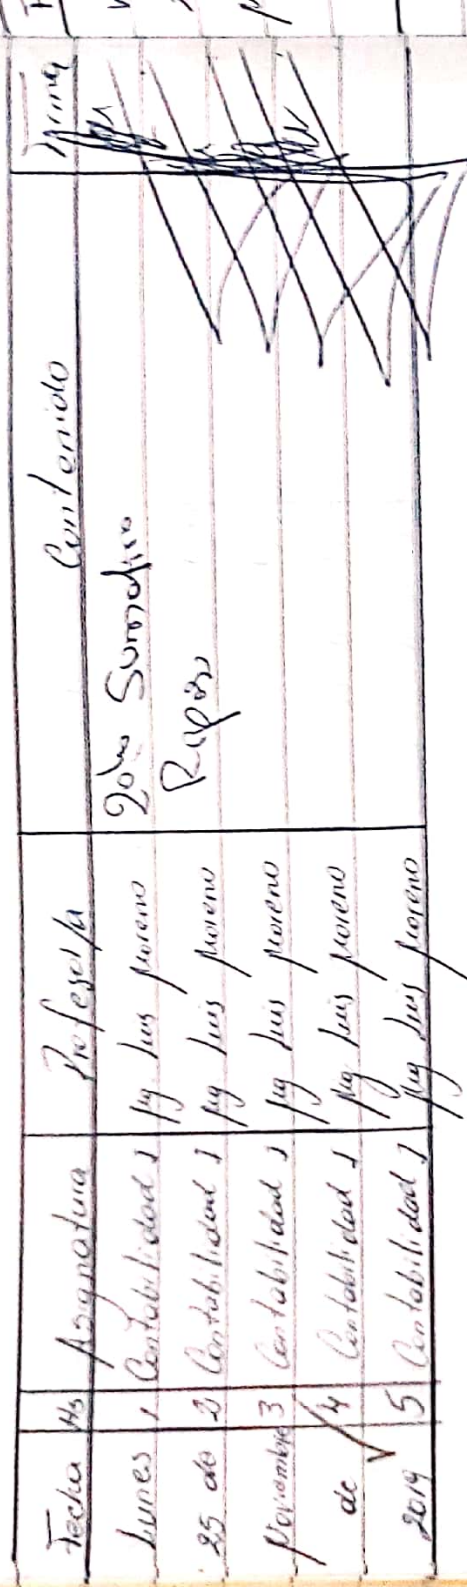 Fecha Hs Asignatura Profesor/a Contenido Firma
Lunes 1 Contabilidad 1 Mg Luis Moreno 2do Sumativo
25 de 2 Contabilidad 1 Mg Luis Moreno Repaso
Noviembre 3 Contabilidad 1 Mg Luis Moreno
de 4 Contabilidad 1 Mg Luis Moreno
2019 5 Contabilidad 1 Mg Luis Moreno